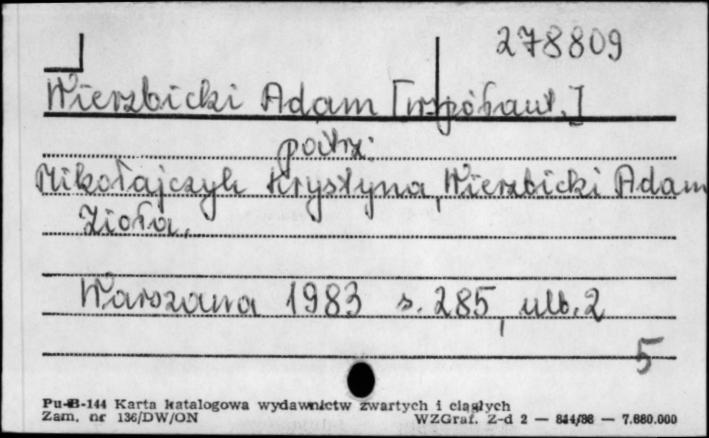 278809
Wierzbicki Adam [współaut.]
patrz:
Mikołajczyk Krystyna, Wierzbicki Adam
Zioła.
Warszawa 1983 s. 285, ulb. 2
5
Pu-B-144 Karta katalogowa wydawnictw zwartych i ciągłych
Zam. nr 136/DW/ON WZGraf. Z-d 2 — 844/88 — 7.680.000